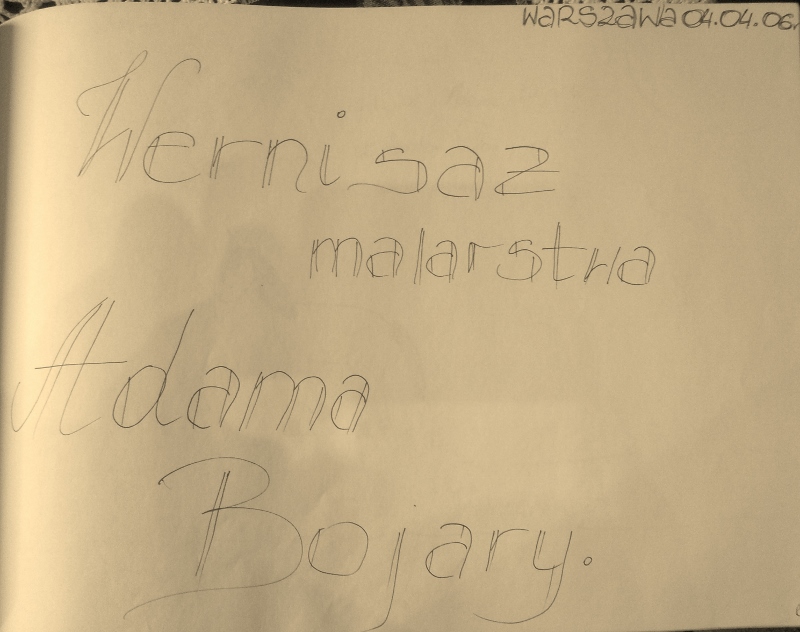 WARSZAWA 04.04.06r.
Wernisaz
malarstwa
Adama
Bojary.